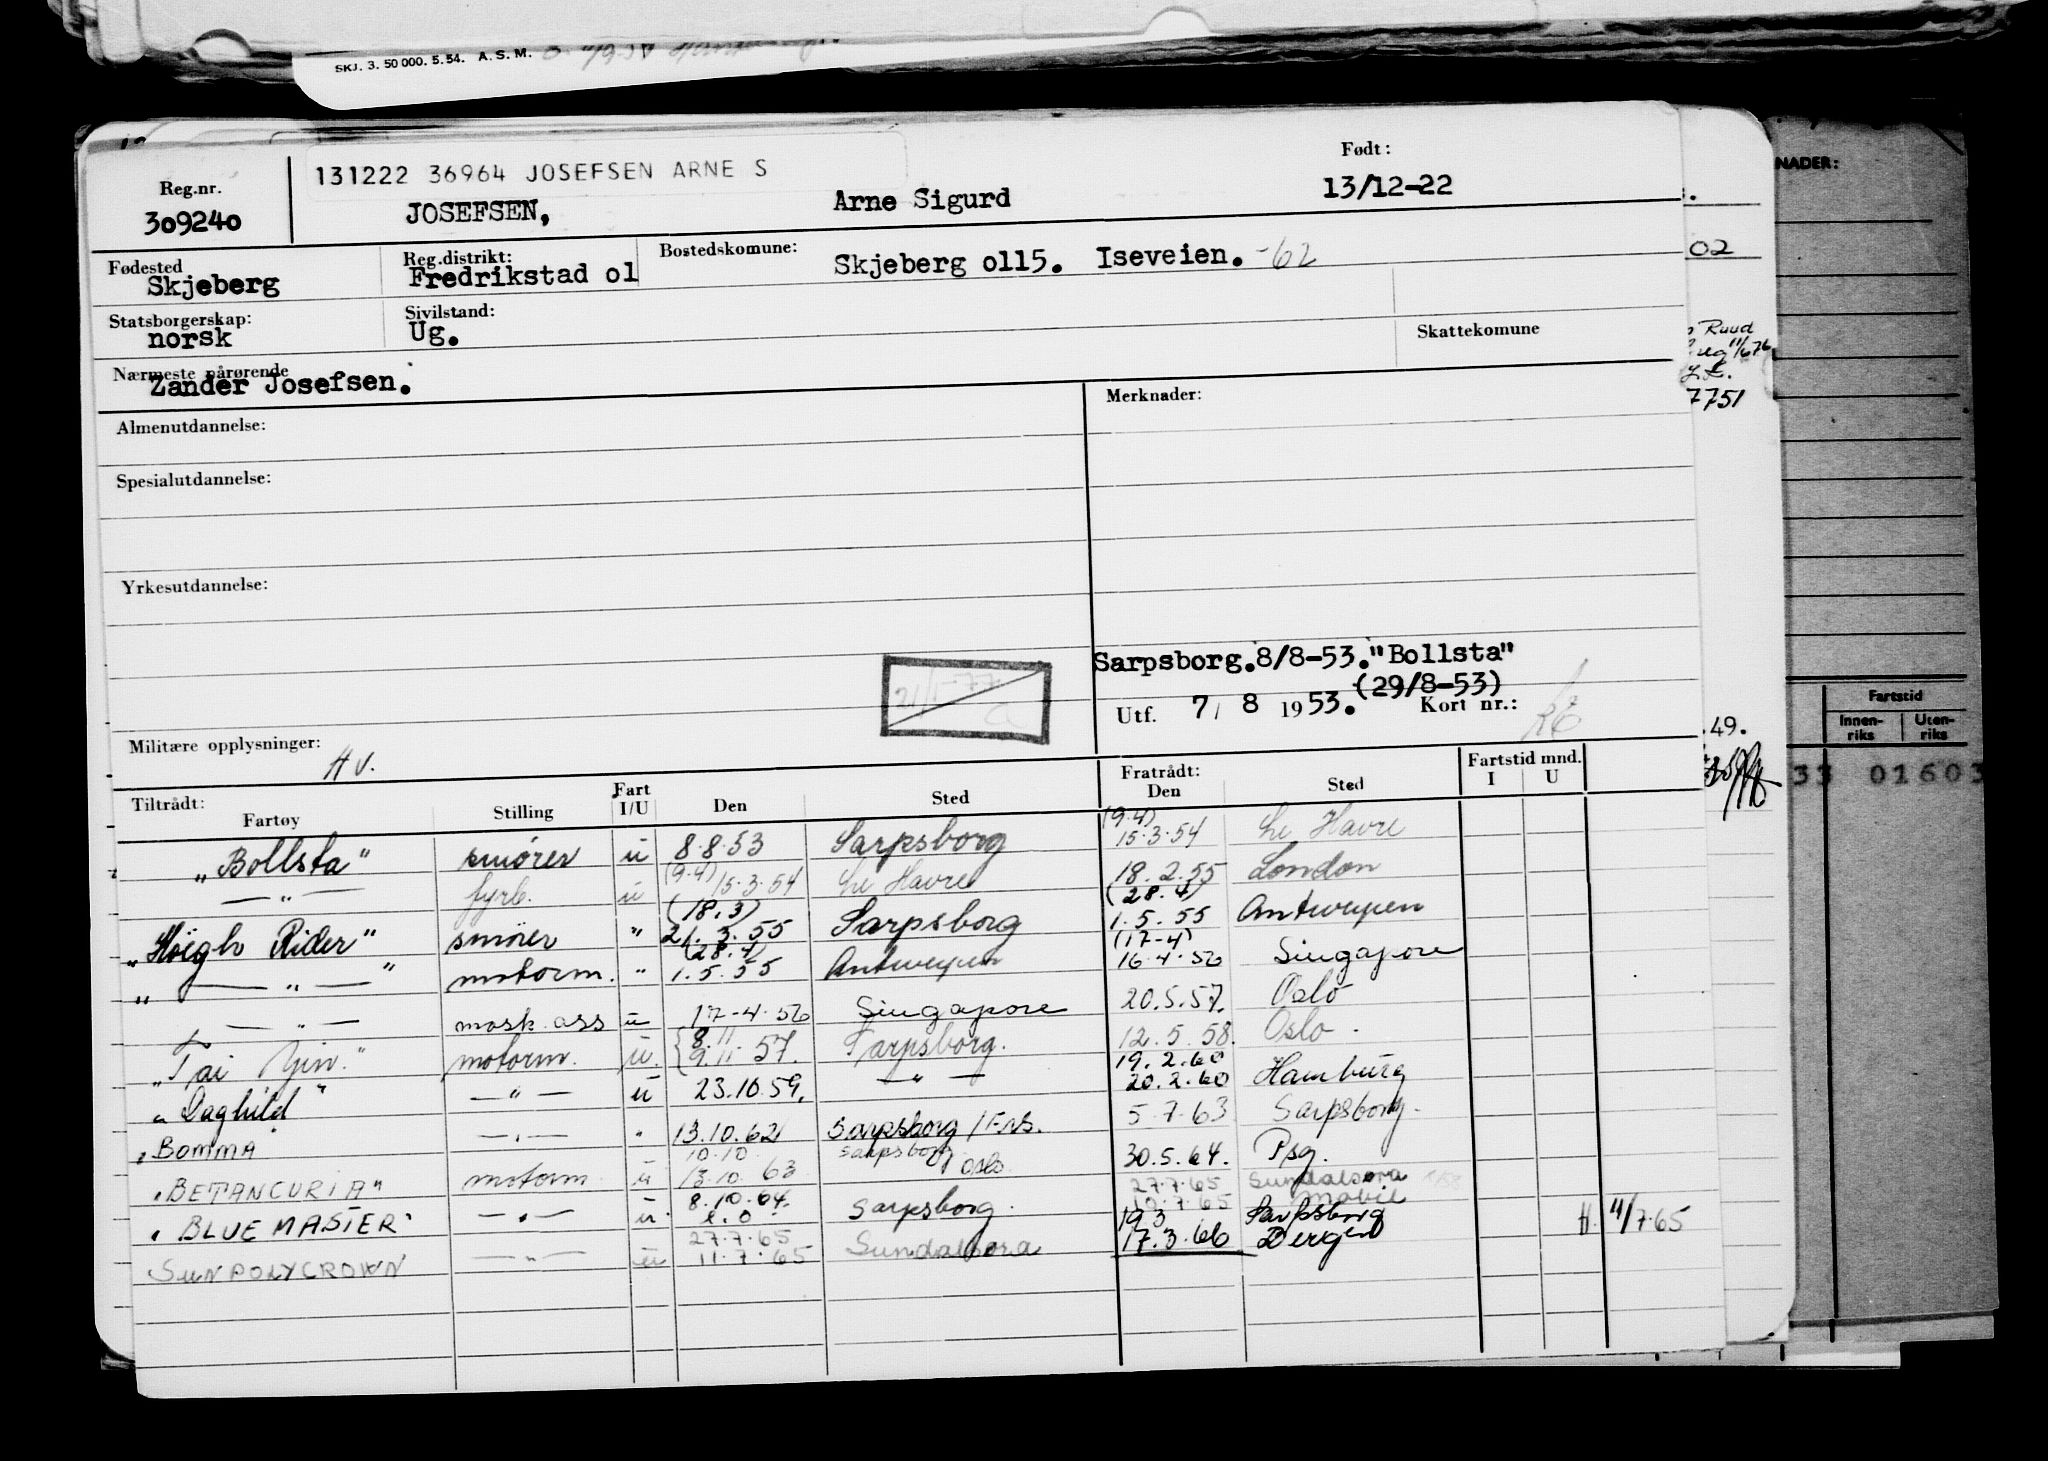 SKJ. 3. 50 000. 5.54. A. S. M.
NADER:
Reg.nr. 131222 36964 JOSEFSEN ARNE S Født:
309240 JOSEFSEN, Arne Sigurd 13/12-22
Fødested Reg.distrikt: Bostedskomune:
Skjeberg Fredrikstad o1 Skjeberg o115. Iseveien. -62
02
Statsborgerskap: Sivilstand: Skattekomune
norsk Ug.
Ruud
Nærmeste pårørende
Zander Josefsen.
7751
Almenutdannelse: Merknader:
Spesialutdannelse:
Yrkesutdannelse:
Sarpsborg.8/8-53."Bollsta"
(29/8-53)
Utf. 7/ 8 1953. Kort nr.:
21/1-77
Militære opplysninger: HV.
49.
Fartstid
Innen-riks Uten-riks
33 01603
Tiltrådt: Fart Fratrådt: Fartstid mnd.
Fartøy Stilling I/U Den Sted Den Sted I U
"Bollsta" smører u 8.8.53 Sarpsborg (9.4) 15.3.54 Le Havre
— " — fyrb. u (9.4) 15.3.54 Le Havre 18.2.55 London
"Høegh Rider" smører " (18.3) 21.3.55 Sarpsborg (28.4) 1.5.55 Antwerpen
" — " — " motorm. " (28.4) 1.5.55 Antwerpen (17-4) 16.4.56 Singapore
— " — mask.ass u 17-4-56 Singapore 20.5.57. Oslo
"Tai Yin." motorm. u. 8.11 9.11.57. Sarpsborg. 12.5.58. Oslo.
"Daghild" — " — u 23.10.59. — " — 19.2.60 20.2.60 Hamburg
"BOMMA" — " — " 13.10.62 Sarpsborg / 5.7.63 Sarpsborg.
"BETANCURIA" motorm u 10.10 13.10.63 Sarpsborg Oslo 30.5.64. Psg.
"BLUE MASTER" — " — u 8.10.64. Sarpsborg. 27.7.65 10.7.65 Sundalsøra Mobil
SUNPOLYCROWN — " — u 27.7.65 11.7.65 Sundalsøra 19.3 17.3.66 Sarpsborg Bergen H. 11/7-65